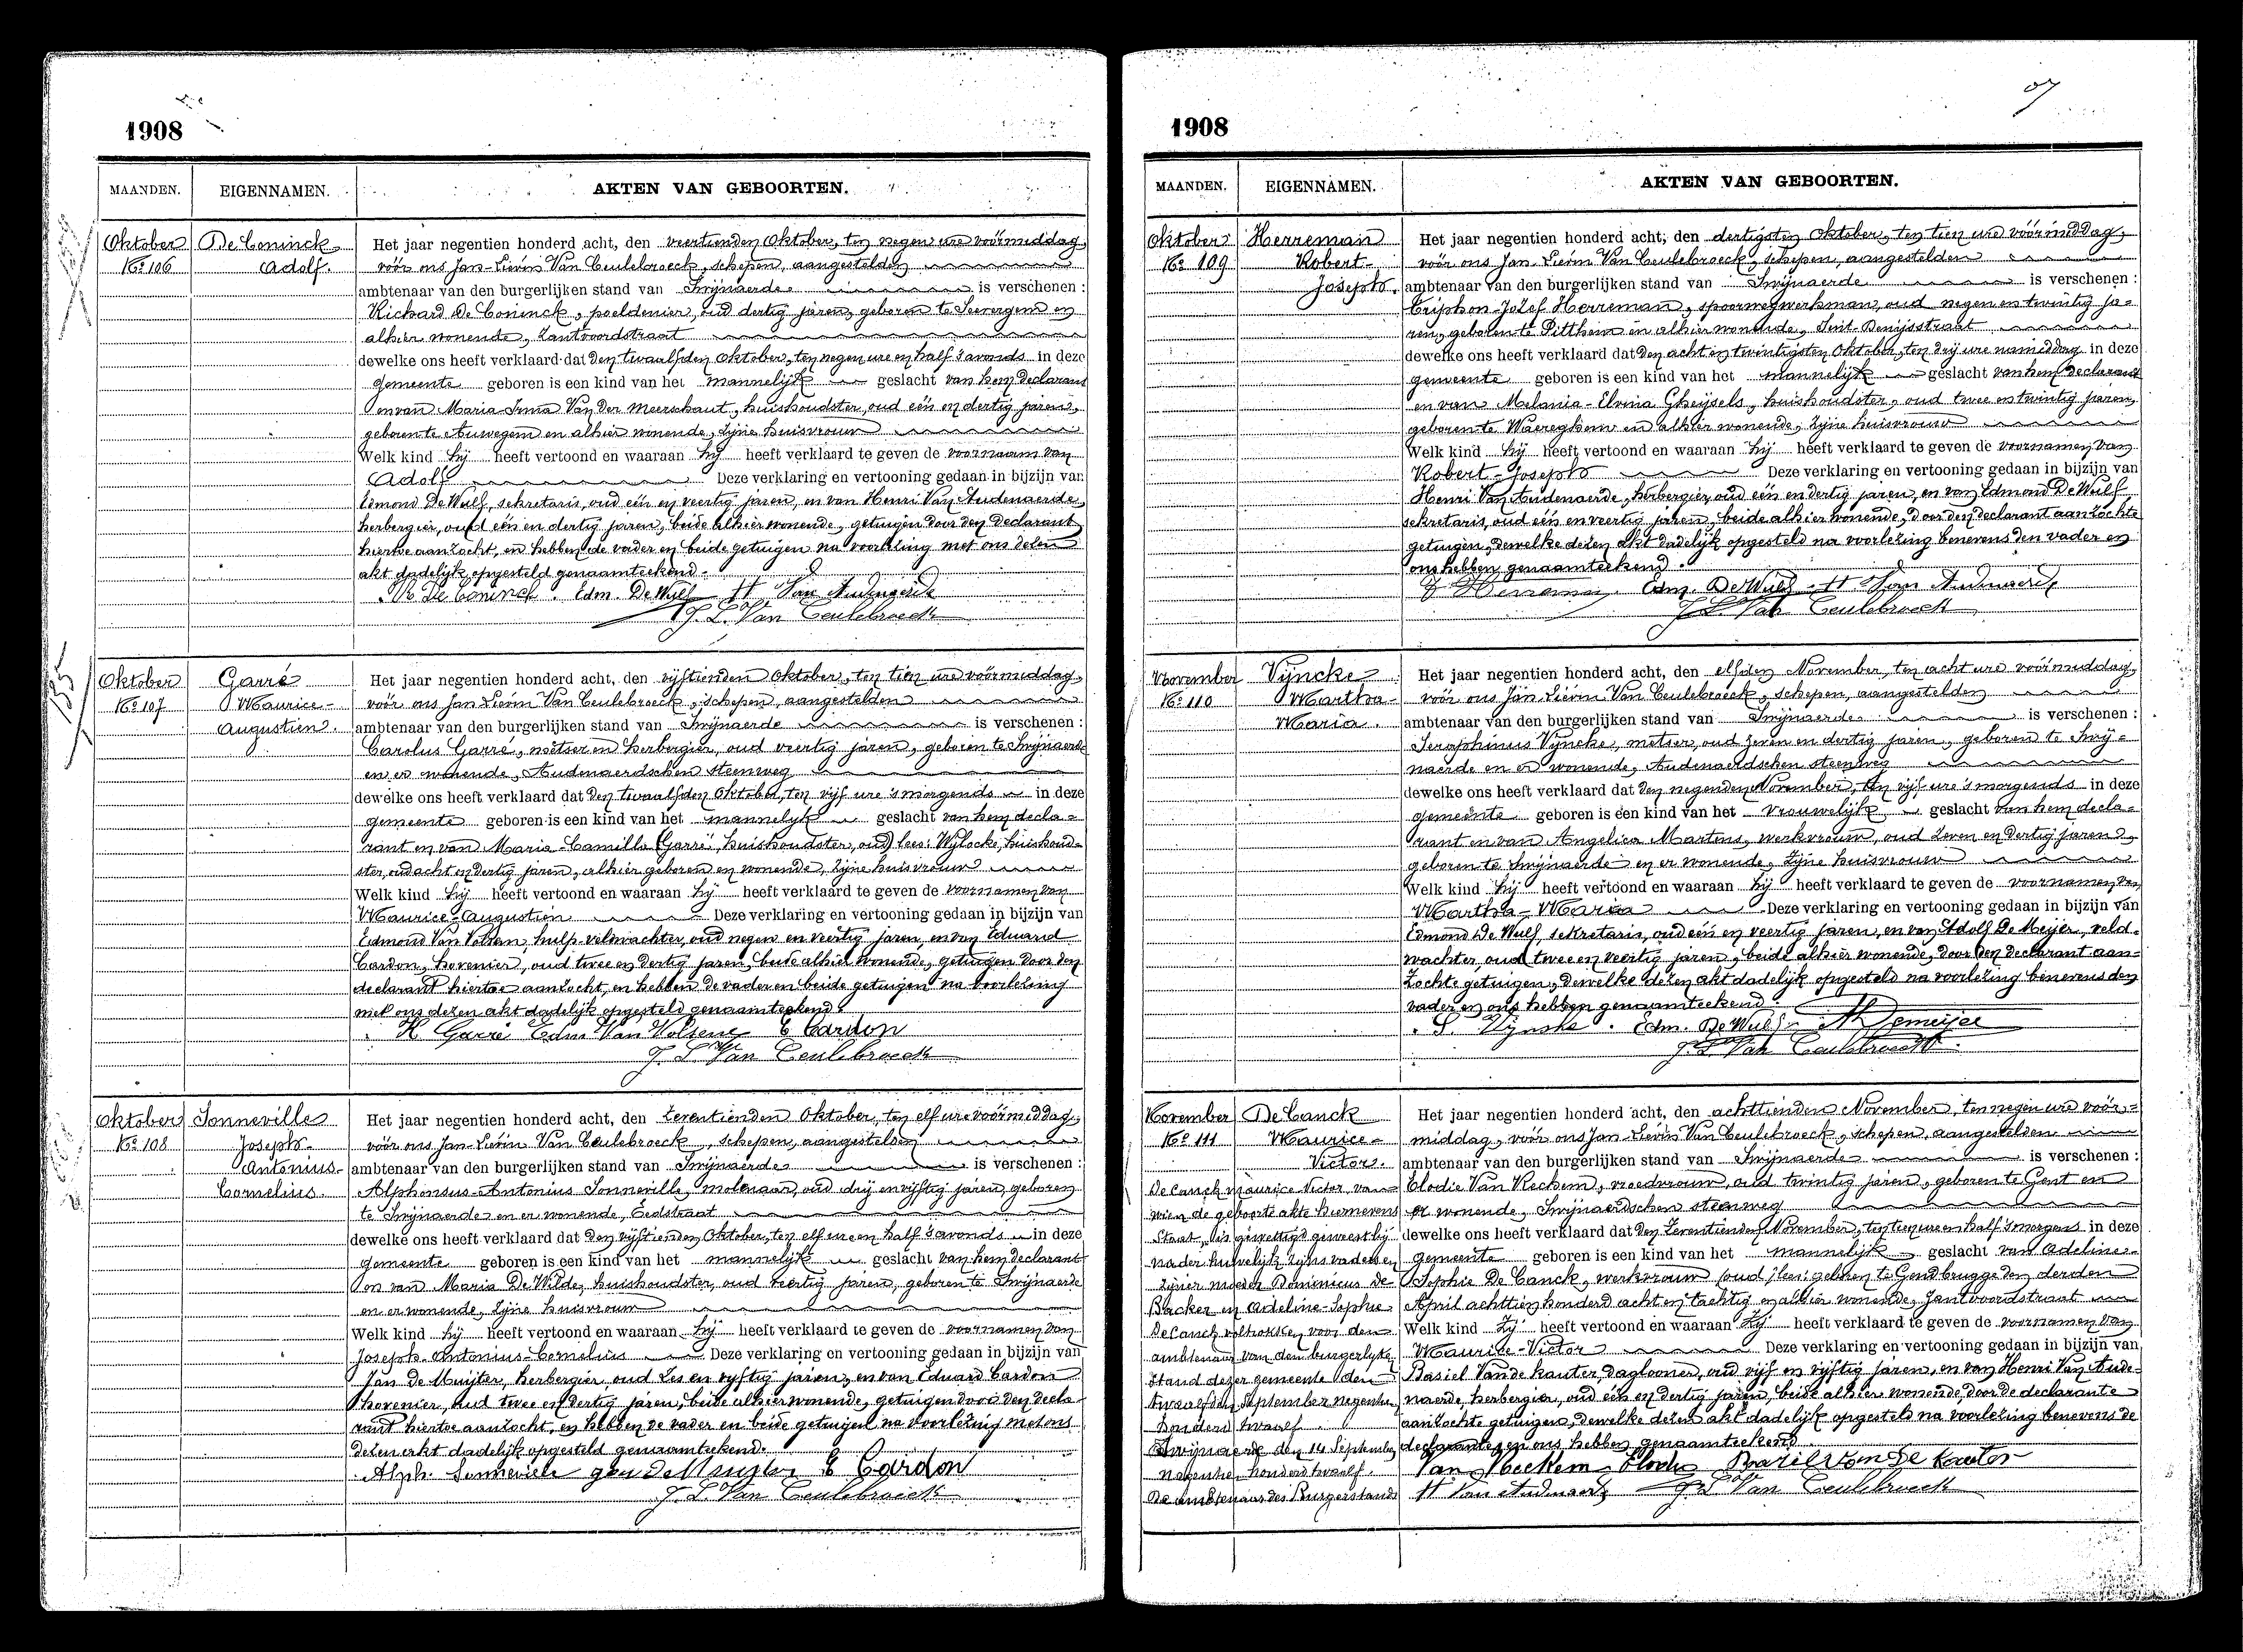 1908
MAANDEN. EIGENNAMEN. AKTEN VAN GEBOORTEN.
Oktober De Coninck
No 106 Adolf.
Het jaar negentien honderd acht, den veertienden Oktober, ten negen ure voormiddag,
vóór ons Jan-Lievin Van Ceulebroeck, schepen, aangestelden
ambtenaar van den burgerlijken stand van Swijnaerde is verschenen :
Richard De Coninck, poeldenier, oud dertig jaren, geboren te Severgem en
alhier wonende, Zantvoordstraat
dewelke ons heeft verklaard dat den twaalfden Oktober, ten negen ure en half 's avonds in deze
gemeente geboren is een kind van het mannelijk geslacht van hem declarant
en van Maria-Anna Van der Meerschaut, huishoudster, oud één en dertig jaren,
geboren te Auwegem en alhier wonende, zijne huisvrouw
Welk kind hij heeft vertoond en waaraan hij heeft verklaard te geven de voornaam van
Adolf Deze verklaring en vertooning gedaan in bijzijn van
Edmond De Wulf, sekretaris, oud één en veertig jaren, en van Henri Van Audenaerde,
herbergier, oud één en dertig jaren, beide alhier wonende, getuigen door den declarant
hiertoe aanzocht, en hebben de vader en beide getuigen na voorlezing met ons dezen
akt dadelijk opgesteld genaamteekend.
De Coninck. Edm. De Wulf H Van Audenaerde
J. L. Van Ceulebroeck
Oktober Garré
No 107 Maurice-
Augustien.
Het jaar negentien honderd acht, den vijftienden Oktober, ten tien ure voormiddag,
vóór ons Jan Lievin Van Ceulebroeck, schepen, aangestelden
ambtenaar van den burgerlijken stand van Swijnaerde is verschenen :
Carolus Garré, metser en herbergier, oud veertig jaren, geboren te Swijnaerde
en er wonende, Audenaerdschen steenweg
dewelke ons heeft verklaard dat den twaalfden Oktober, ten vijf ure 's morgends in deze
gemeente geboren is een kind van het mannelijk geslacht van hem decla=
rant en van Maria-Camilla (Garré, huishoudster, oud) lees: Wylocke, huishoud-
ster, oud acht en dertig jaren, alhier geboren en wonende, zijne huisvrouw
Welk kind hij heeft vertoond en waaraan hij heeft verklaard te geven de voornamen van
Maurice-Augustien Deze verklaring en vertooning gedaan in bijzijn van
Edmond Van Volsem, hulp veldwachter, oud negen en veertig jaren, en van Eduard
Cardon, hovenier, oud twee en dertig jaren, beide alhier wonende, getuigen door den
declarant hiertoe aanzocht, en hebben de vader en beide getuigen na voorlezing
met ons dezen akt dadelijk opgesteld genaamteekend.
K Garré Edm Van Volsem E Cardon
J. L. Van Ceulebroeck
Oktober Sonneville
No 108 Joseph-
Antonius-
Cornelius.
Het jaar negentien honderd acht, den zeventienden Oktober, ten elf ure voormiddag,
vóór ons Jan-Lievin Van Ceulebroeck, schepen, aangestelden
ambtenaar van den burgerlijken stand van Swijnaerde is verschenen :
Alphonsus-Antonius Sonneville, molenaar, oud drij en vijftig jaren, geboren
te Swijnaerde en er wonende, Eedstraat
dewelke ons heeft verklaard dat den vijftienden Oktober, ten elf ure en half 's avonds in deze
gemeente geboren is een kind van het mannelijk geslacht van hem declarant
en van Maria De Wilde, huishoudster, oud veertig jaren, geboren te Swijnaerde
en er wonende, zijne huisvrouw
Welk kind hij heeft vertoond en waaraan hij heeft verklaard te geven de voornamen van
Joseph-Antonius-Cornelius Deze verklaring en vertooning gedaan in bijzijn van
Jan De Muijter, herbergier, oud zes en vijftig jaren, en van Eduard Cardon
hovenier, oud twee en dertig jaren, beide alhier wonende, getuigen door den decla-
rant hiertoe aanzocht, en hebben de vader en beide getuigen na voorlezing met ons
dezen akt dadelijk opgesteld genaamteekend.
Alph. Sonneville E Cardon
J. L. Van Ceulebroeck
1908
MAANDEN. EIGENNAMEN. AKTEN VAN GEBOORTEN.
Oktober Herreman
No 109 Robert-
Joseph.
Het jaar negentien honderd acht, den dertigsten Oktober, ten tien ure vóórmiddag,
vóór ons Jan-Lievin Van Ceulebroeck, schepen, aangestelden
ambtenaar van den burgerlijken stand van Swijnaerde is verschenen :
Triphon-Jozef Herreman, spoorwegwerkman, oud negen en twintig ja=
ren, geboren te Pitthem en alhier wonende, Sint-Denijsstraat
dewelke ons heeft verklaard dat den acht en twintigsten Oktober, ten drij ure namiddag in deze
gemeente geboren is een kind van het mannelijk geslacht van hem declarant
en van Melania-Elvina Gheijsels, huishoudster, oud twee en twintig jaren,
geboren te Waereghem en alhier wonende, zijne huisvrouw
Welk kind hij heeft vertoond en waaraan hij heeft verklaard te geven de voornamen van
Robert-Joseph Deze verklaring en vertooning gedaan in bijzijn van
Henri Van Audenaerde, herbergier, oud één en dertig jaren, en van Edmond De Wulf
sekretaris, oud één en veertig jaren, beide alhier wonende, door den declarant aanzochte
getuigen, dewelke dezen akt dadelijk opgesteld na voorlezing benevens den vader en
ons hebben genaamteekend.
Herreman. Edm. De Wulf H Van Audenaerde
J. L. Van Ceulebroeck
November Vijncke
No 110 Martha-
Maria.
Het jaar negentien honderd acht, den elfden November, ten acht ure vóórmiddag,
vóór ons Jan Lievin Van Ceulebroeck, schepen, aangestelden
ambtenaar van den burgerlijken stand van Swijnaerde is verschenen :
Seraphinus Vijncke, metser, oud zeven en dertig jaren, geboren te Swij=
naerde en er wonende, Audenaerdschen steenweg
dewelke ons heeft verklaard dat den negenden November, ten vijf ure 's morgends in deze
gemeente geboren is een kind van het vrouwelijk geslacht van hem decla=
rant en van Angelica Martens, werkvrouw, oud zeven en dertig jaren,
geboren te Swijnaerde en er wonende, zijne huisvrouw
Welk kind hij heeft vertoond en waaraan hij heeft verklaard te geven de voornamen van
Martha-Maria Deze verklaring en vertooning gedaan in bijzijn van
Edmond De Wulf, sekretaris, oud één en veertig jaren, en van Adolf De Meijer, veld-
wachter, oud twee en veertig jaren, beide alhier wonende, door den declarant aan-
zochte getuigen, dewelke dezen akt dadelijk opgesteld na voorlezing benevens den
vader en ons hebben genaamteekend.
S. Vijncke. Edm. De Wulf Demeijer
J. L. Van Ceulebroeck.
November De Canck
No 111 Maurice-
Victor.
De Canck Maurice Victor van
wien de geboorte akte hiernevens
staat, is gewettigd geweest bij
nader huwelijk zijns vaders en
zijner moeder Dominicus De
Backer en Adeline-Sophie
De Canck voltrokken voor den
ambtenaar van den burgerlyke
stand dezer gemeente den
twaalfden September negentien
honderd twaalf.
Swijnaerde den 14 September
negentien honderd twaalf.
De ambtenaar des Burgerstands
Het jaar negentien honderd acht, den achttienden November, ten negen ure vóór=
middag, vóór ons Jan-Lievin Van Ceulebroeck, schepen, aangestelden
ambtenaar van den burgerlijken stand van Swijnaerde is verschenen :
Elodie Van Keckem, vroedvrouw, oud twintig jaren, geboren te Gent en
er wonende, Swijnaerdschen steenweg
dewelke ons heeft verklaard dat den zeventienden November, ten tien ure en half 's morgens in deze
gemeente geboren is een kind van het mannelijk geslacht van Adeline-
Sophie De Canck, werkvrouw (oud) lees: geboren te Gendbrugge den derden
April achttien honderd acht en tachtig en alhier wonende, Zantvoordstraat
Welk kind zij heeft vertoond en waaraan zij heeft verklaard te geven de voornamen van
Maurice-Victor Deze verklaring en vertooning gedaan in bijzijn van
Basiel Vande Kauter, daglooner, oud vijf en vijftig jaren, en van Henri Van Aude-
naerde, herbergier, oud één en dertig jaren, beide alhier wonende, door de declarante
aanzochte getuigen, dewelke dezen akt dadelijk opgesteld na voorlezing benevens de
declarante en ons hebben genaamteekend.
Van Keckem Elodie Bazil van De kauter
H Van Audenaerde J. L. Van Ceulebroeck